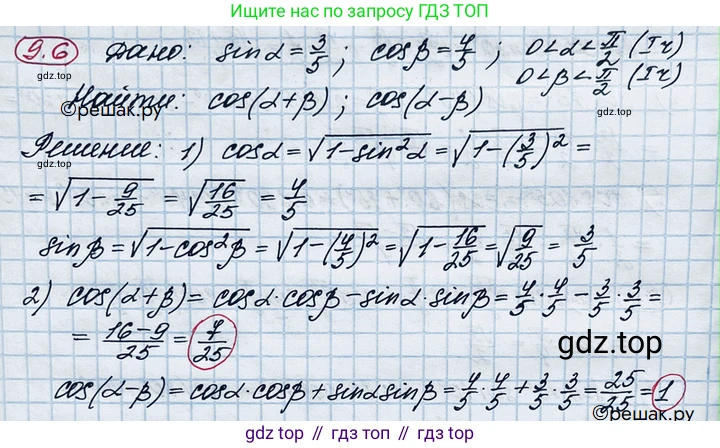 Ищите нас по запросу ГДЗ ТОП
9.6 Дано: sinα = 3/5; cosβ = 4/5; 0<α<π/2 (Iч)
0<β<π/2 (Iч)
gdz.top
Найти: cos(α+β); cos(α-β)
gdz.top
©reшак.ру
©reшак.ру
Решение: 1) cosα = √(1-sin²α) = √(1-(3/5)²) =
= √(1-9/25) = √(16/25) = 4/5
sinβ = √(1-cos²β) = √(1-(4/5)²) = √(1-16/25) = √(9/25) = 3/5
2) cos(α+β) = cosα·cosβ - sinα·sinβ = 4/5·4/5 - 3/5·3/5 =
= (16-9)/25 = 7/25
gdz.top
cos(α-β) = cosα·cosβ + sinα sinβ = 4/5·4/5 + 3/5·3/5 = 25/25 = 1
©reшак.ру
gdz.top // гдз.топ // gdz.top